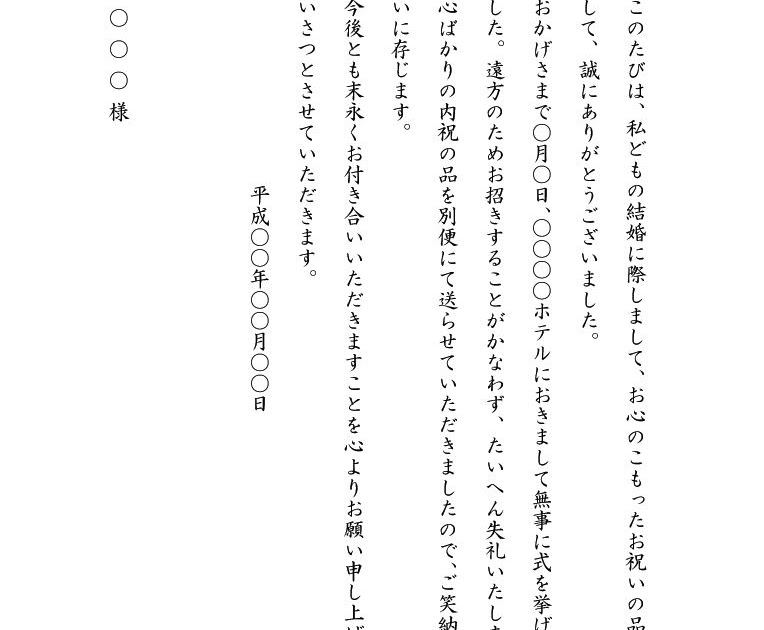 このたびは、私どもの結婚に際しまして、お心のこもったお祝いの品
して、誠にありがとうございました。
おかげさまで〇月〇日、〇〇〇〇ホテルにおきまして無事に式を挙げ
した。遠方のためお招きすることがかなわず、たいへん失礼いたしま
心ばかりの内祝の品を別便にて送らせていただきましたので、ご笑納
いに存じます。
今後とも末永くお付き合いいただきますことを心よりお願い申し上げ
いさつとさせていただきます。
平成〇〇年〇〇月〇〇日
〇〇〇様